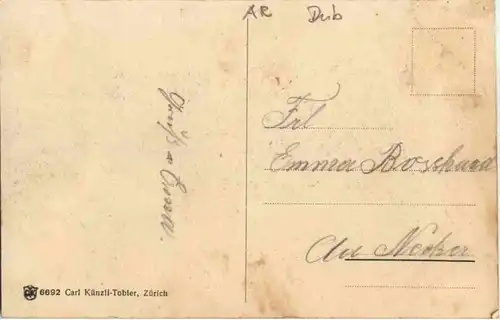 AR Dub
Gruß a Emma.
Frl
Emma Bosshard
An Necker
6692 Carl Künzli-Tobler, Zürich